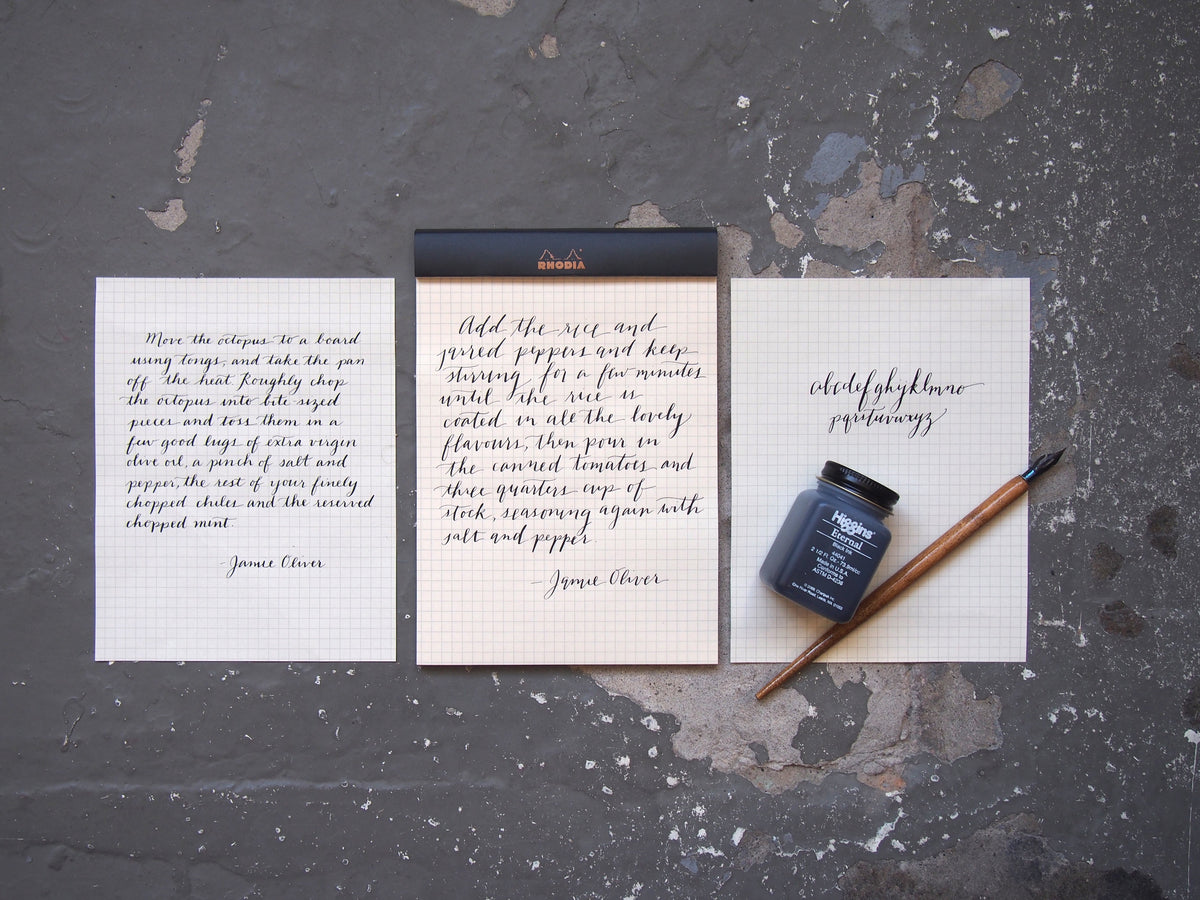 Move the octopus to a board
using tongs, and take the pan
off the heat. Roughly chop
the octopus into bite-sized
pieces and toss them in a
few good lugs of extra virgin
olive oil, a pinch of salt and
pepper, the rest of your finely
chopped chiles and the reserved
chopped mint.
- Jamie Oliver
RHODIA
Add the rice and
jarred peppers and keep
stirring for a few minutes
until the rice is
coated in all the lovely
flavours, then pour in
the canned tomatoes and
three quarters cup of
stock, seasoning again with
salt and pepper.
- Jamie Oliver
abcdefghyklmno
pqrstuvwxyz
Higgins
Eternal
Black Ink
44041
2 1/2 Fl. Oz. - 73.9ml/cc
Made in U.S.A.
Conforms to
ASTM D-4236